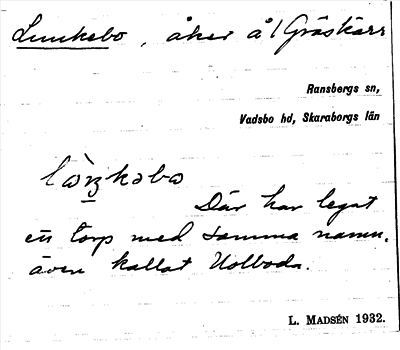 Lunkebo, åker å/Gråskärr
Ransbergs sn,
Vadsbo hd, Skaraborgs län
Där har legat
ett torp med samma namn,
även kallat
L. MADSÉN 1932.